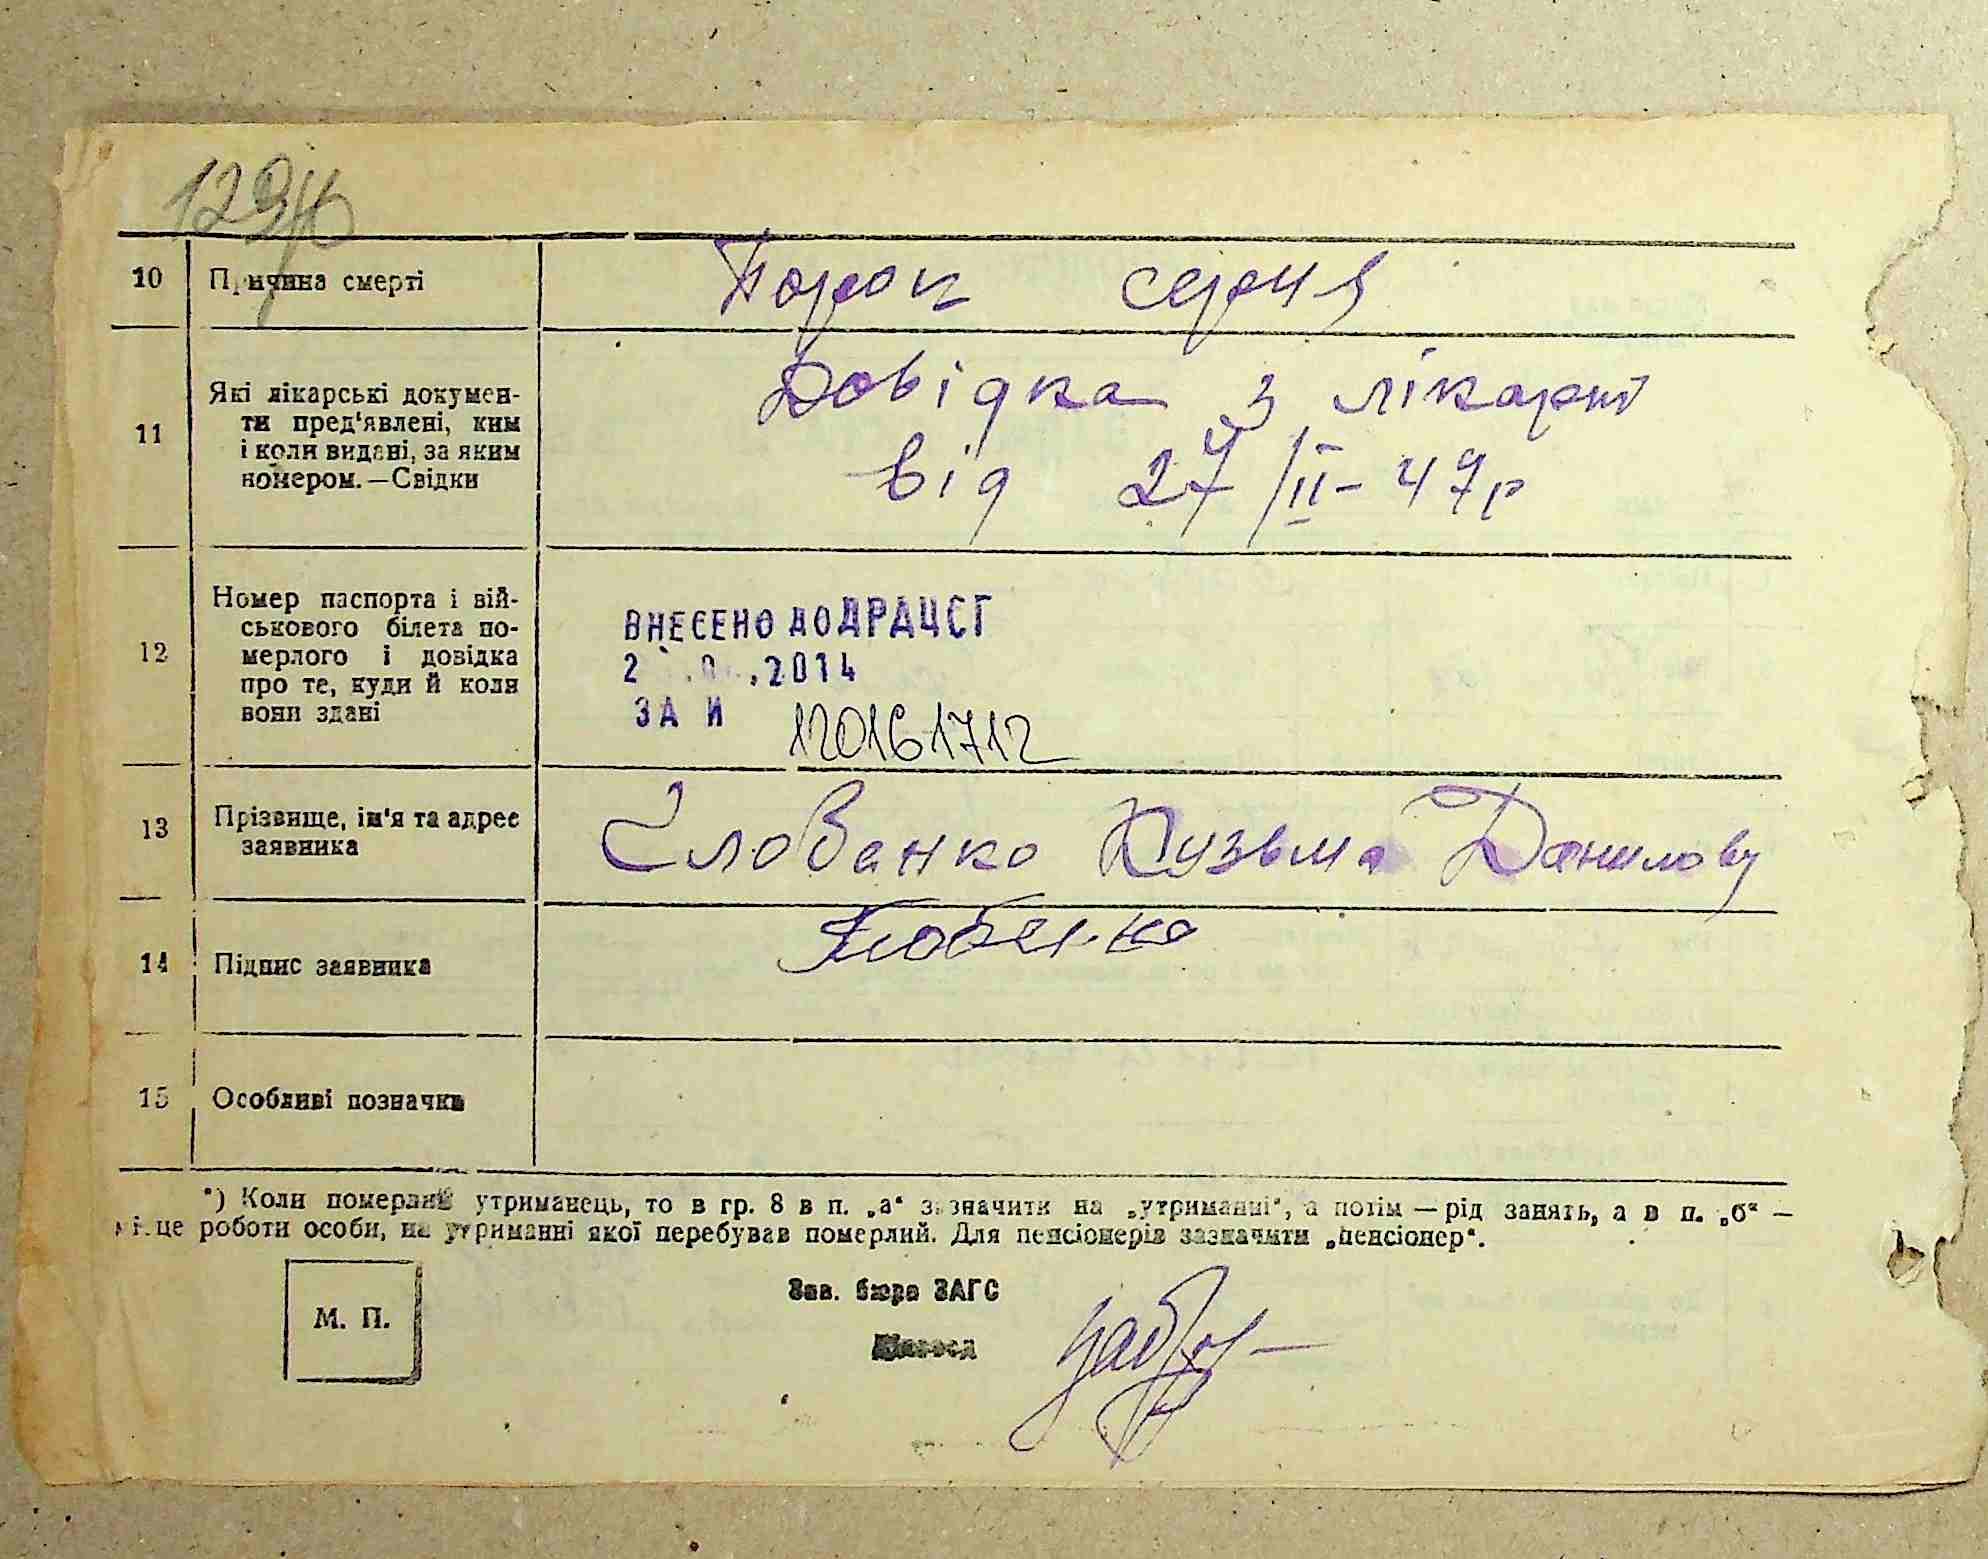 129
10 Причина смерті Порок серця
11 Які лікарські докумен-
ти пред'явлені, ким
і коли видані, за яким
номером.—Свідки
Довідка з лікарні
від 27/II-47р
12 Номер паспорта і вій-
ськового білета по-
мерлого і довідка
про те, куди й коли
вони здані
ВНЕСЕНО ДО ДРАЦСГ
2 .0 .2014
ЗА И 120161712
13 Прізвище, ім'я та адрес
заявника
Словенко Кузьма Данилову
14 Підпис заявника
15 Особливі позначки
*) Коли померлий утриманець, то в гр. 8 в п. „а“ зазначити на „утриманні“, а потім — рід занять, а в п. „б“ —
місце роботи особи, на утриманні якої перебував померлий. Для пенсіонерів зазначити „пенсіонер“.
М. П.
Зав. бюро ЗАГС